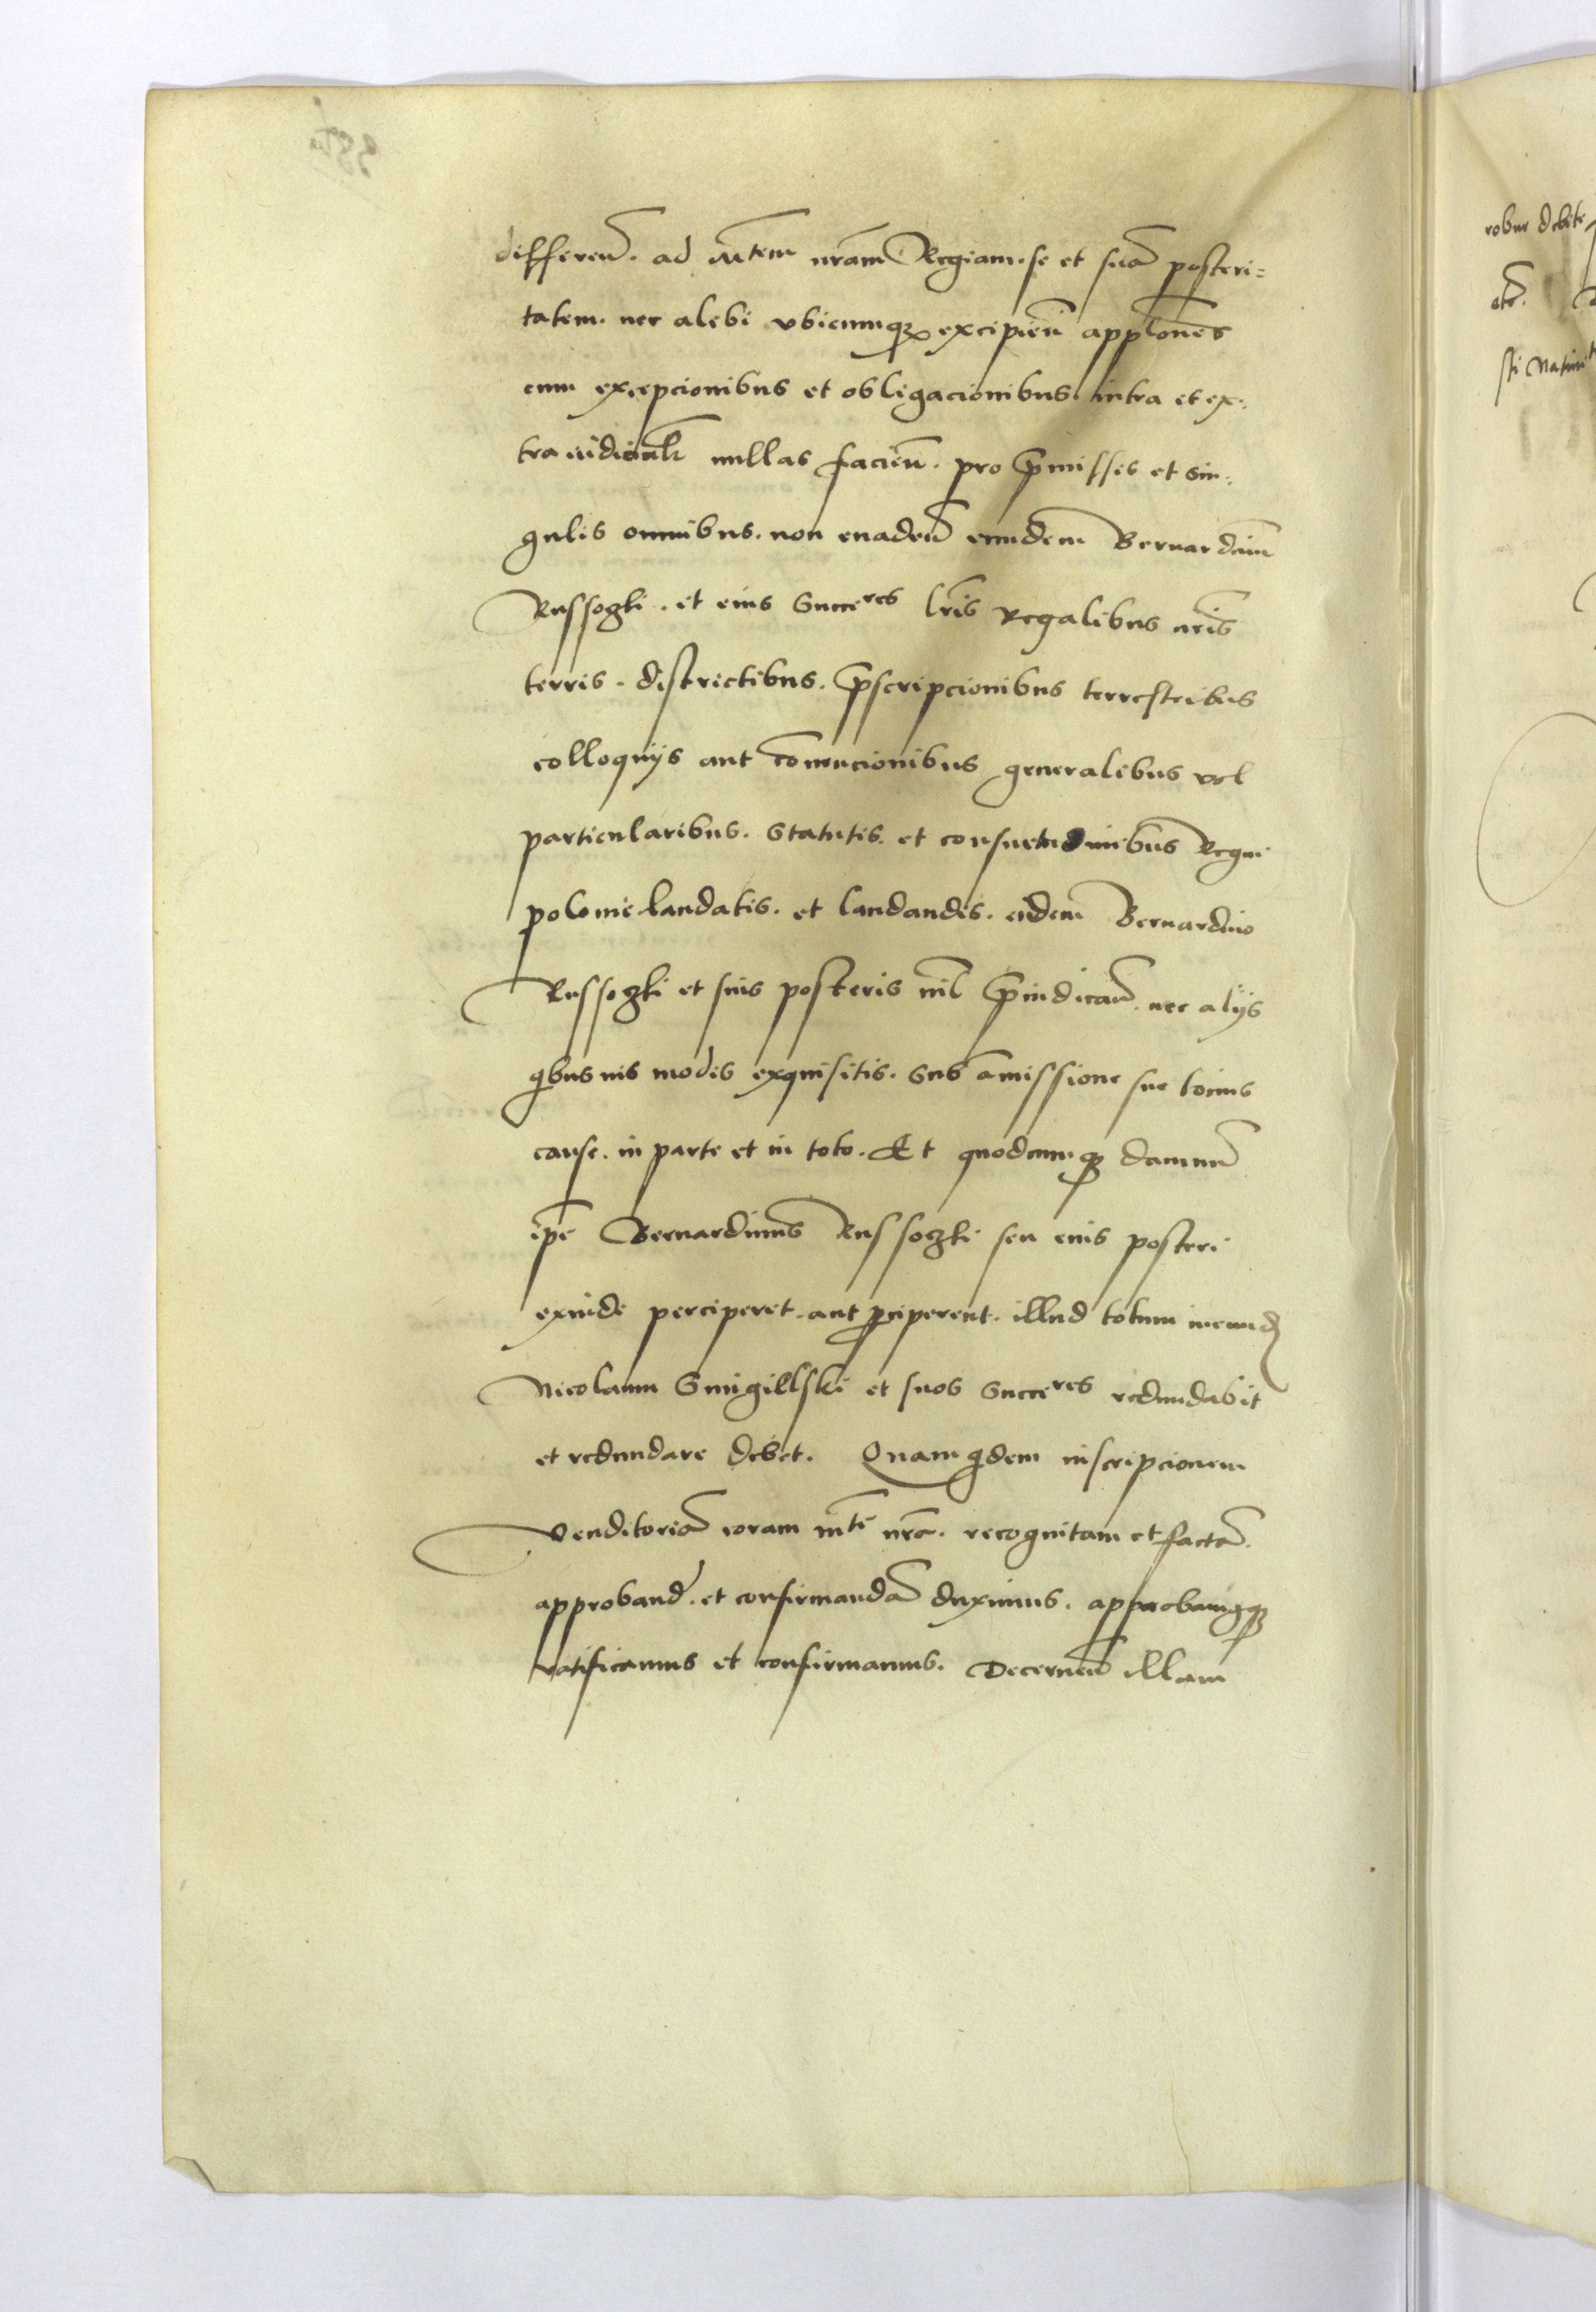 differeñ. ad Mtem nrãm Regiam. se et suã posteri=
tatem. nec alibi vbicumqꝫ excipieñ applõnes
cum excepcionibus et obligacionibus intra et ex=
tra iudicialr̃ nullas facieñ. pro p̃missis et sin=
gulis omnibus. non euadeñ eundem Bernardinũ
Russoczki. et eius Succeres lrĩs Regalibus nrĩs
terris. districtibus. p̃scripcionibus terrestribus
colloquijs aut cõuencionibus generalibus vel
particularibus. Statutis. et consuetudinibus Regni
polonie laudatis. et laudandis. eidem Bernardino
Russoczki et suis posteris nil p̃iudicañ. nec alijs
qibusuis modis exquisitis. Sub amissione sue tocius
cause. in parte et in toto. Et quodcumqꝫ damnũ
ipẽ Bernardinus Russoczki seu eius posteri
exinde perciperet. aut ꝑciperent. illud totum in eund
Nicolaum Smigillski et suos Succeres redundabit
et redundare debet. Quam qidem inscripcionem
Venditoriã coram mte nrã. recognitam et factã
approband. et confirmandã duximus. approbamusqꝫ
ratificamus et confirmamus. Decerneñ illam
robur debite
etc̃.
sti Natiuit